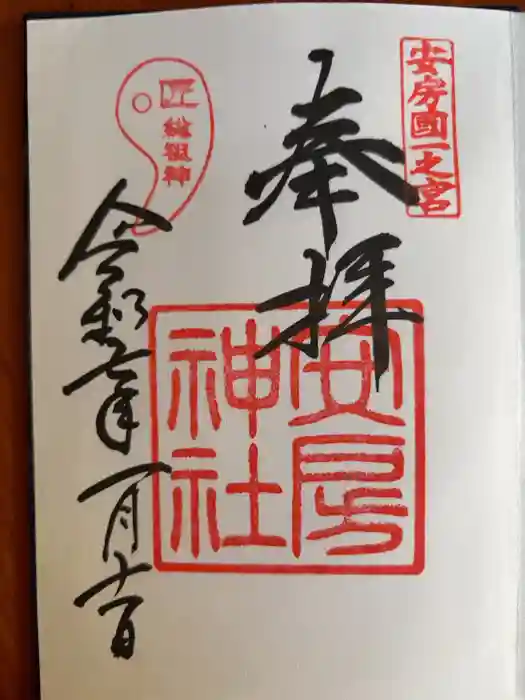 安房國一之宮
奉拝
安房
神社
匠
総祖神
令和七年一月十一日